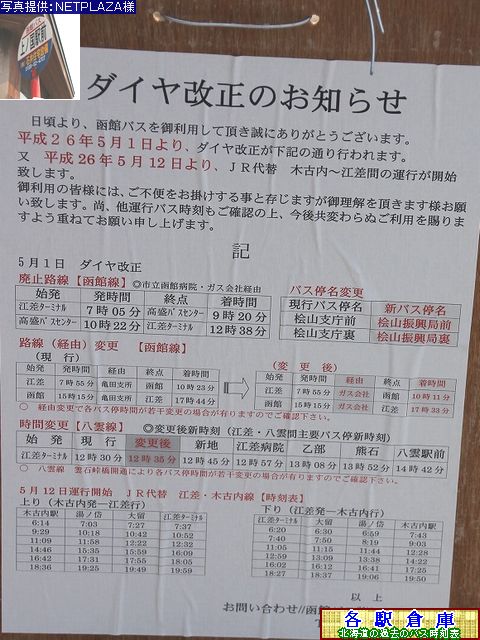 写真提供:NETPLAZA様
上ノ国駅前
ダイヤ改正のお知らせ
日頃より、函館バスを御利用して頂き誠にありがとうございます。
平成２６年５月１日より、ダイヤ改正が下記の通り行われます。
又　平成26年５月１２日より、ＪＲ代替　木古内～江差間の運行が開始
致します。
御利用の皆様には、ご不便をお掛けする事と存じますが御理解を頂きます様お願
い致します。尚、他運行バス時刻もご確認の上、今後共変わらぬご利用を賜りま
すよう重ねてお願い申し上げます。
記
５月１日　ダイヤ改正
廃止路線【函館線】◎市立函館病院・ガス会社経由
始発　発時間　終点　着時間
江差ターミナル　７時０５分　高盛バスセンター　９時２０分
高盛バスセンター　１０時２２分　江差ターミナル　１２時３８分
バス停名変更
現行バス停名　新バス停名
桧山支庁前　桧山振興局前
桧山支庁裏　桧山振興局裏
路線（経由）変更　【函館線】
（現　行）
始発　発時間　経由　終点　着時間
江差　７時５５分　亀田支所　函館　１０時２３分
函館　１５時１５分　亀田支所　江差　１７時４４分
（変　更　後）
始発　発時間　経由　終点　着時間
江差　７時５５分　ガス会社　函館　１０時１１分
函館　１５時１５分　ガス会社　江差　１７時３３分
○　経由変更で各バス停時間が若干変更の場合が有りますのでご確認下さい。
時間変更【八雲線】　◎変更後新時刻（江差・八雲間主要バス停新時刻）
始　発　現　行　変更後　新地　江差病院　乙部　熊石　八雲駅前
江差ターミナル　12時30分　12時35分　12時45分　12時57分　13時08分　13時52分　14時42分
○　八雲線　雲石峠橋開通により各バス停時間が若干変更の場合が有りますのでご確認下さい。
５月１２日運行開始　ＪＲ代替　江差・木古内線【時刻表】
上り（木古内発―江差行）
木古内駅　湯ノ岱　大留　江差ターミナル
6:14　7:03　7:27　7:37
9:29　10:18　10:42　10:52
11:09　11:58　12:22　12:32
14:46　15:35　15:59　16:09
16:42　17:31　17:55　18:05
18:36　19:25　19:49　19:59
下り（江差発―木古内行）
江差ターミナル　大留　湯ノ岱　木古内駅
6:20　6:30　6:59　7:43
7:40　7:50　8:19　9:03
11:05　11:15　11:44　12:28
13:05　13:15　13:44　14:28
16:02　16:12　16:41　17:25
18:27　18:37　19:06　19:50
以　上
お問い合わせ//函館
各駅倉庫
北海道の過去のバス時刻表